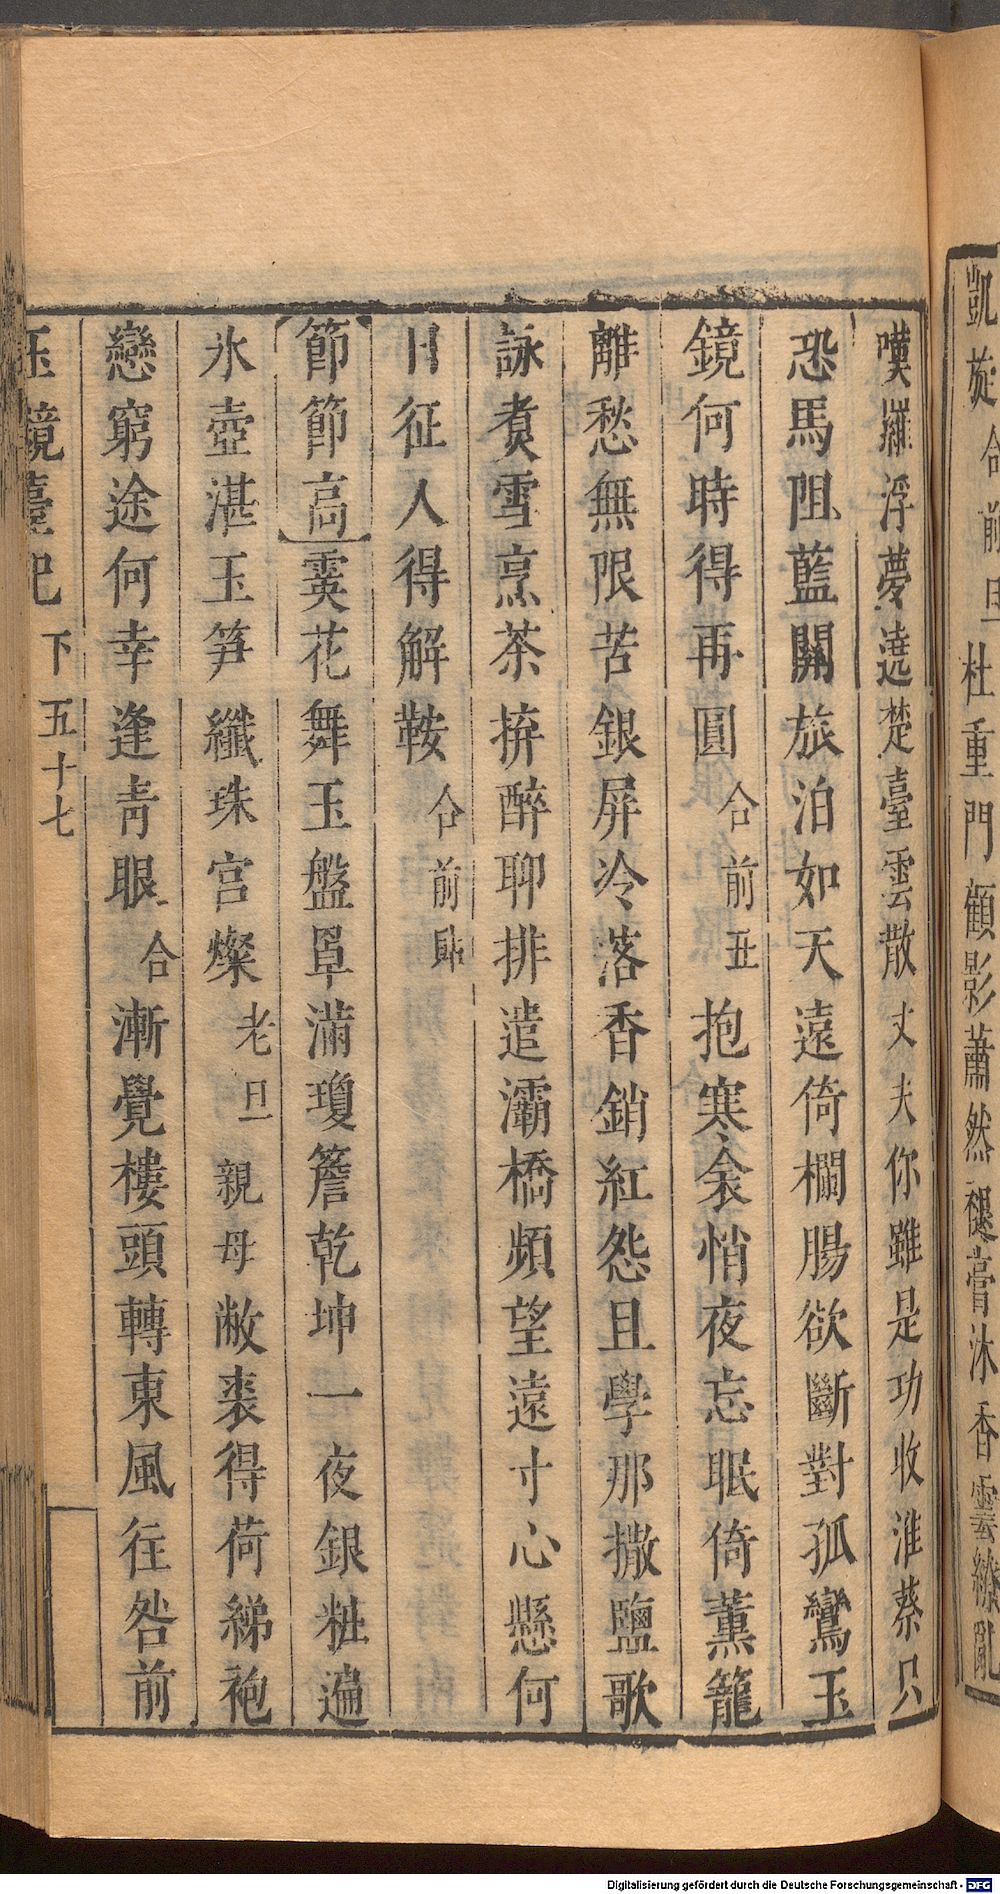 凱旋合前旦杜重門顧影蕭然褪膏沐香雲繚亂
嘆羅浮夢遶楚臺雲散丈夫你雖是功收淮蔡只
恐馬阻藍關旅泊如天遠倚欄腸欲斷對孤鸞玉
鏡何時得再圓合前丑抱寒衾悄夜忘眠倚薰籠
離愁無限苦銀屏冷落香銷紅怨且學那撒鹽歌
詠煑雪烹茶拚醉聊排遣灞橋頻望遠寸心懸何
日征人得解鞍合前貼
節節高霙花舞玉盤㫁滿瓊簷乾坤一夜銀粧遍
氷壺湛玉笋纖珠宮燦老旦親母敝裘得荷綈袍
戀窮途何幸逢靑眼合漸覺樓頭轉東風往咎前
玉鏡臺記 下 五十七
Digitalisierung gefördert durch die Deutsche Forschungsgemeinschaft - DFG